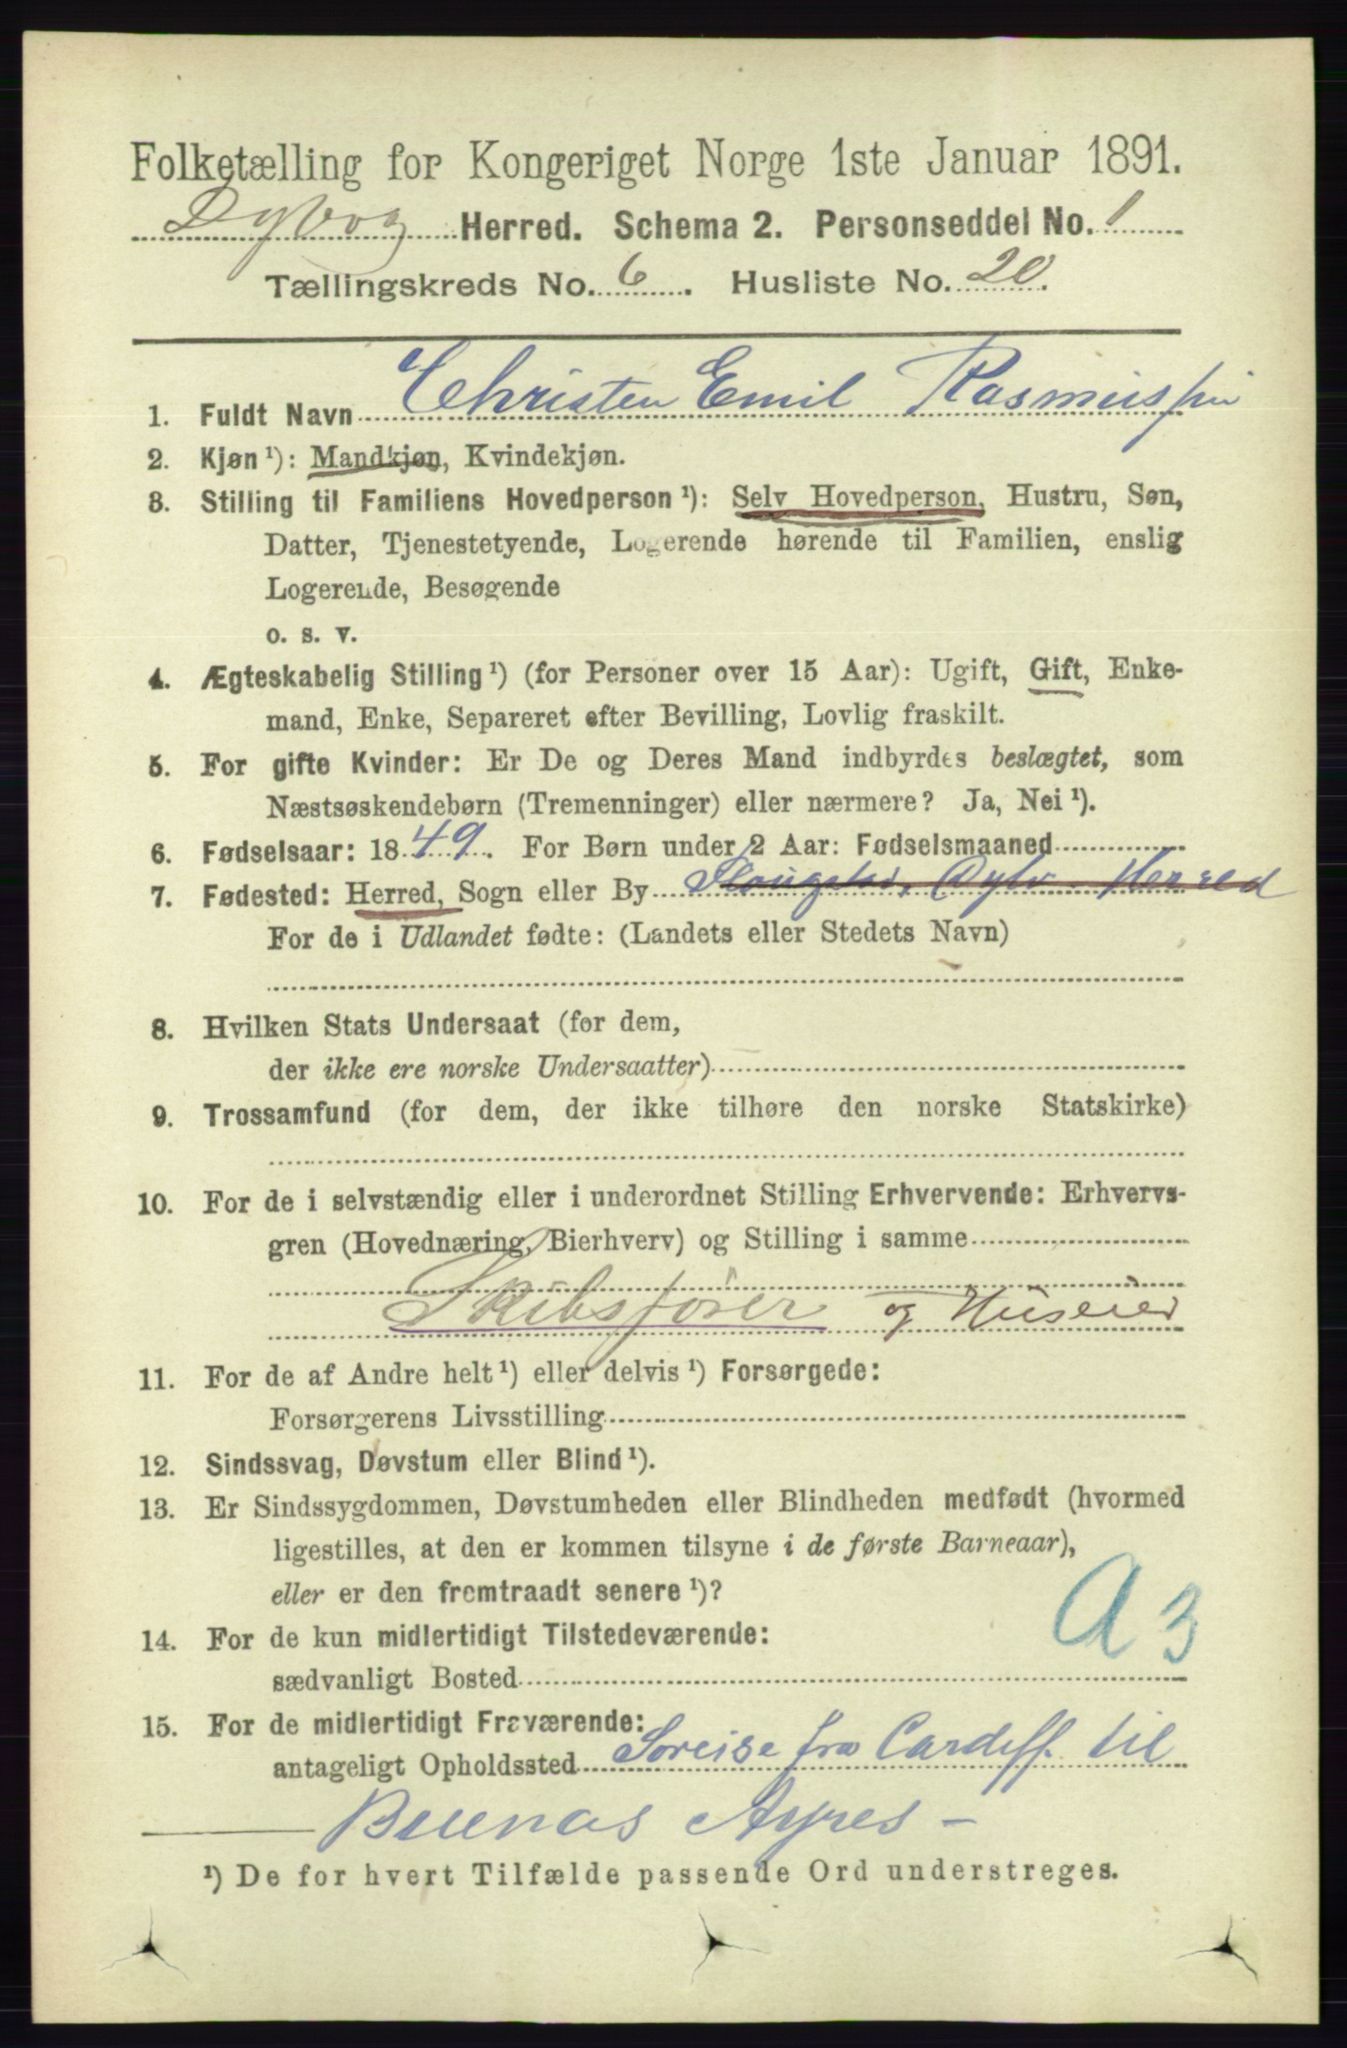 Folketælling for Kongeriget Norge 1ste Januar 1891.
Dybvog Herred. Schema 2. Personseddel No. 1
Tællingskreds No. 6. Husliste No. 20.
1. Fuldt Navn Christen Emil Rasmussen
2. Kjøn ¹): Mandkjøn, Kvindekjøn.
3. Stilling til Familiens Hovedperson ¹): Selv Hovedperson, Hustru, Søn,
Datter, Tjenestetyende, Logerende hørende til Familien, enslig
Logerende, Besøgende
o. s. v.
4. Ægteskabelig Stilling ¹) (for Personer over 15 Aar): Ugift, Gift, Enke-
mand, Enke, Separeret efter Bevilling, Lovlig fraskilt.
5. For gifte Kvinder: Er De og Deres Mand indbyrdes beslægtet, som
Næstsøskendebørn (Tremenninger) eller nærmere? Ja, Nei ¹).
6. Fødselsaar: 1849. For Børn under 2 Aar: Fødselsmaaned
7. Fødested: Herred, Sogn eller By Dybv. Herred
For de i Udlandet fødte: (Landets eller Stedets Navn)
8. Hvilken Stats Undersaat (for dem,
der ikke ere norske Undersaatter)
9. Trossamfund (for dem, der ikke tilhøre den norske Statskirke)
10. For de i selvstændig eller i underordnet Stilling Erhvervende: Erhvervs-
gren (Hovednæring, Bierhverv) og Stilling i samme
Skibsfører og Huseier
11. For de af Andre helt ¹) eller delvis ¹) Forsørgede:
Forsørgerens Livsstilling
12. Sindssvag, Døvstum eller Blind ¹).
13. Er Sindssygdommen, Døvstumheden eller Blindheden medfødt (hvormed
ligestilles, at den er kommen tilsyne i de første Barneaar),
eller er den fremtraadt senere ¹)?
A 3
14. For de kun midlertidigt Tilstedeværende:
sædvanligt Bosted
15. For de midlertidigt Fraværende:
antageligt Opholdssted Søreise fra Cardiff til
Buenas Ayres -
¹) De for hvert Tilfælde passende Ord understreges.